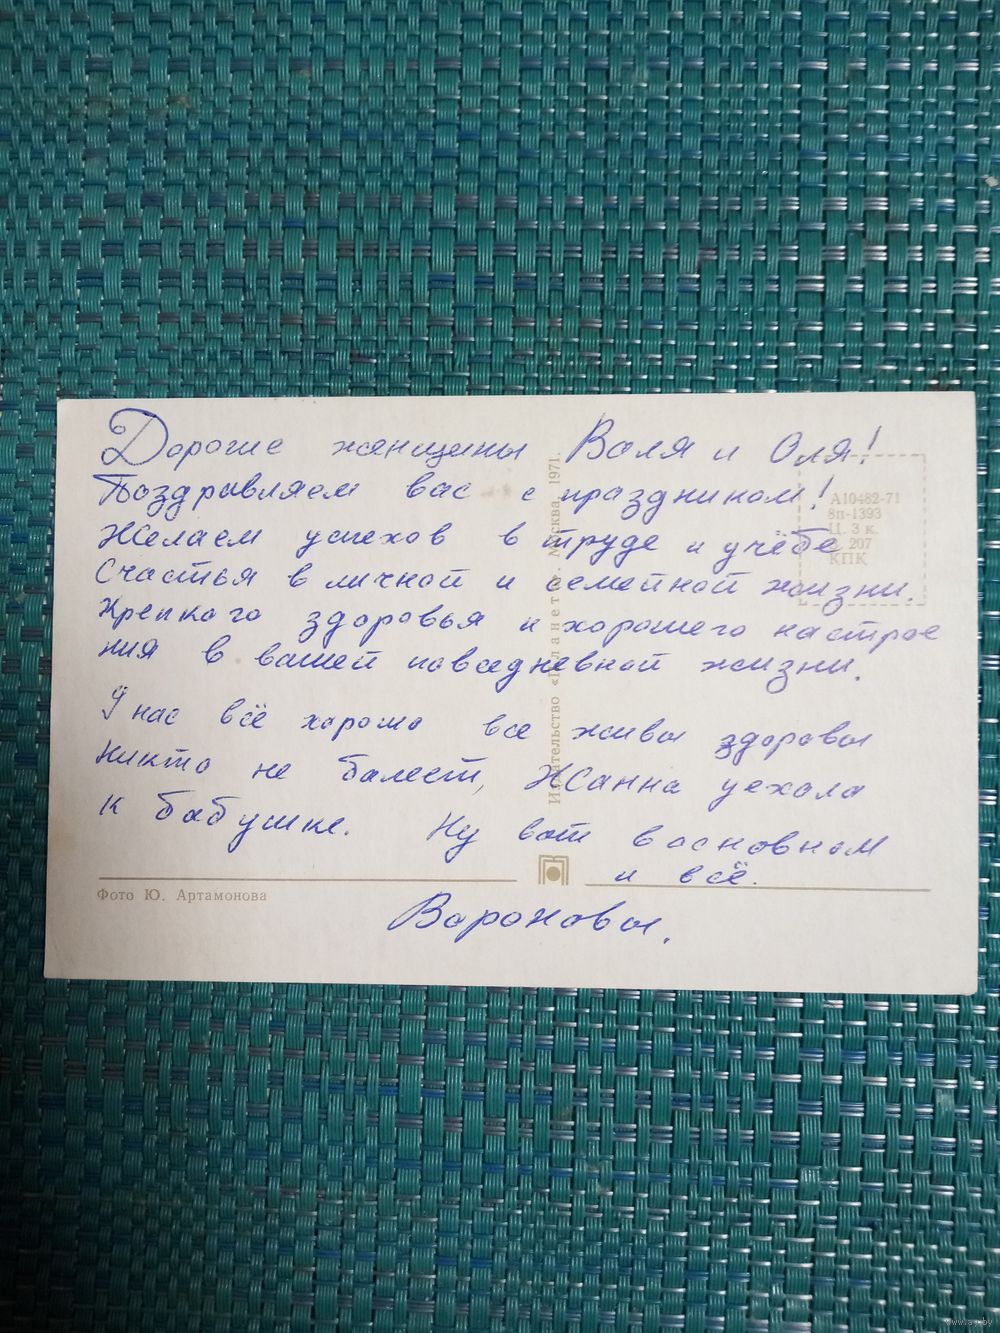 Дорогие женщины Валя и Оля!
Поздравляем вас с праздником!
Желаем успехов в труде и учёбе
Счастья в личной и семейной жизни.
Крепкого здоровья и хорошего настрое
ния в вашей повседневной жизни.
У нас всё хорошо все живы здоровы
никто не болеет, Жанна уехала
к бабушке. Ну вот в основном
и всё.
Вороновы.
Фото Ю. Артамонова
Издательство «Планета». Москва, 1971.
А10482-71
8п-1393
Ц. 3 к.
207
КПК
www.ay.by